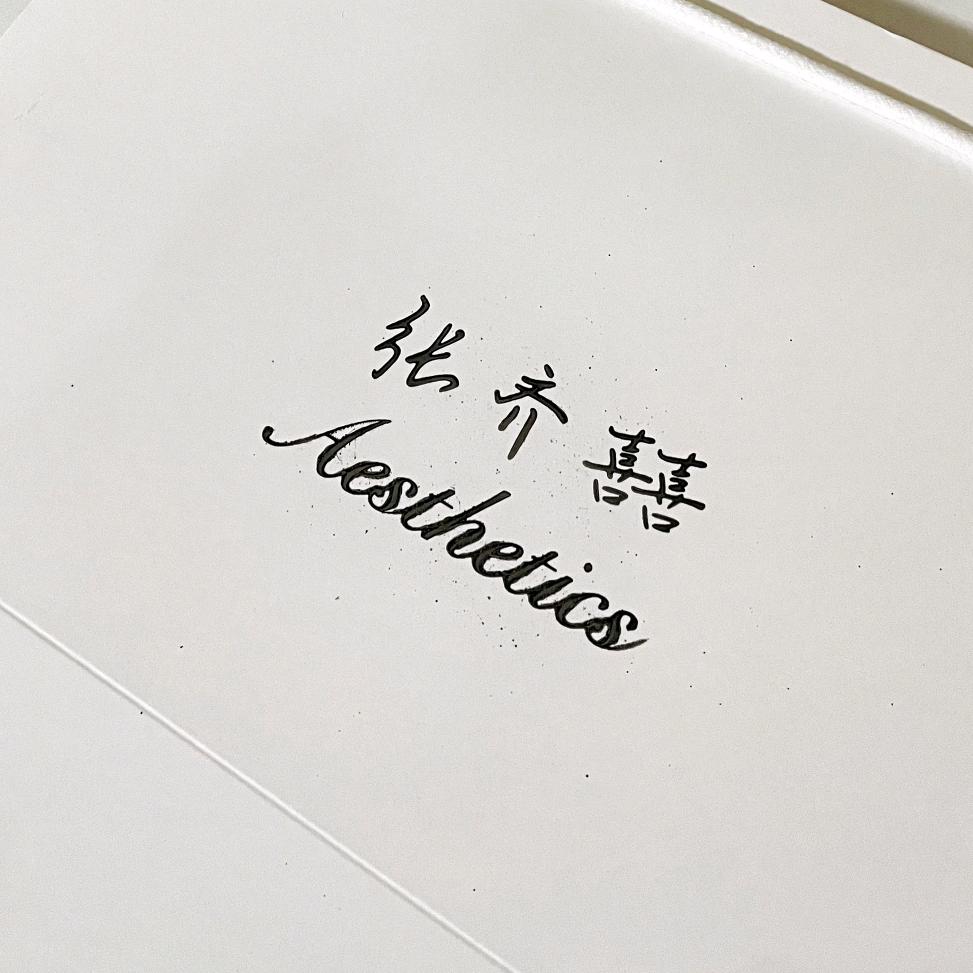 张齐囍
Aesthetics